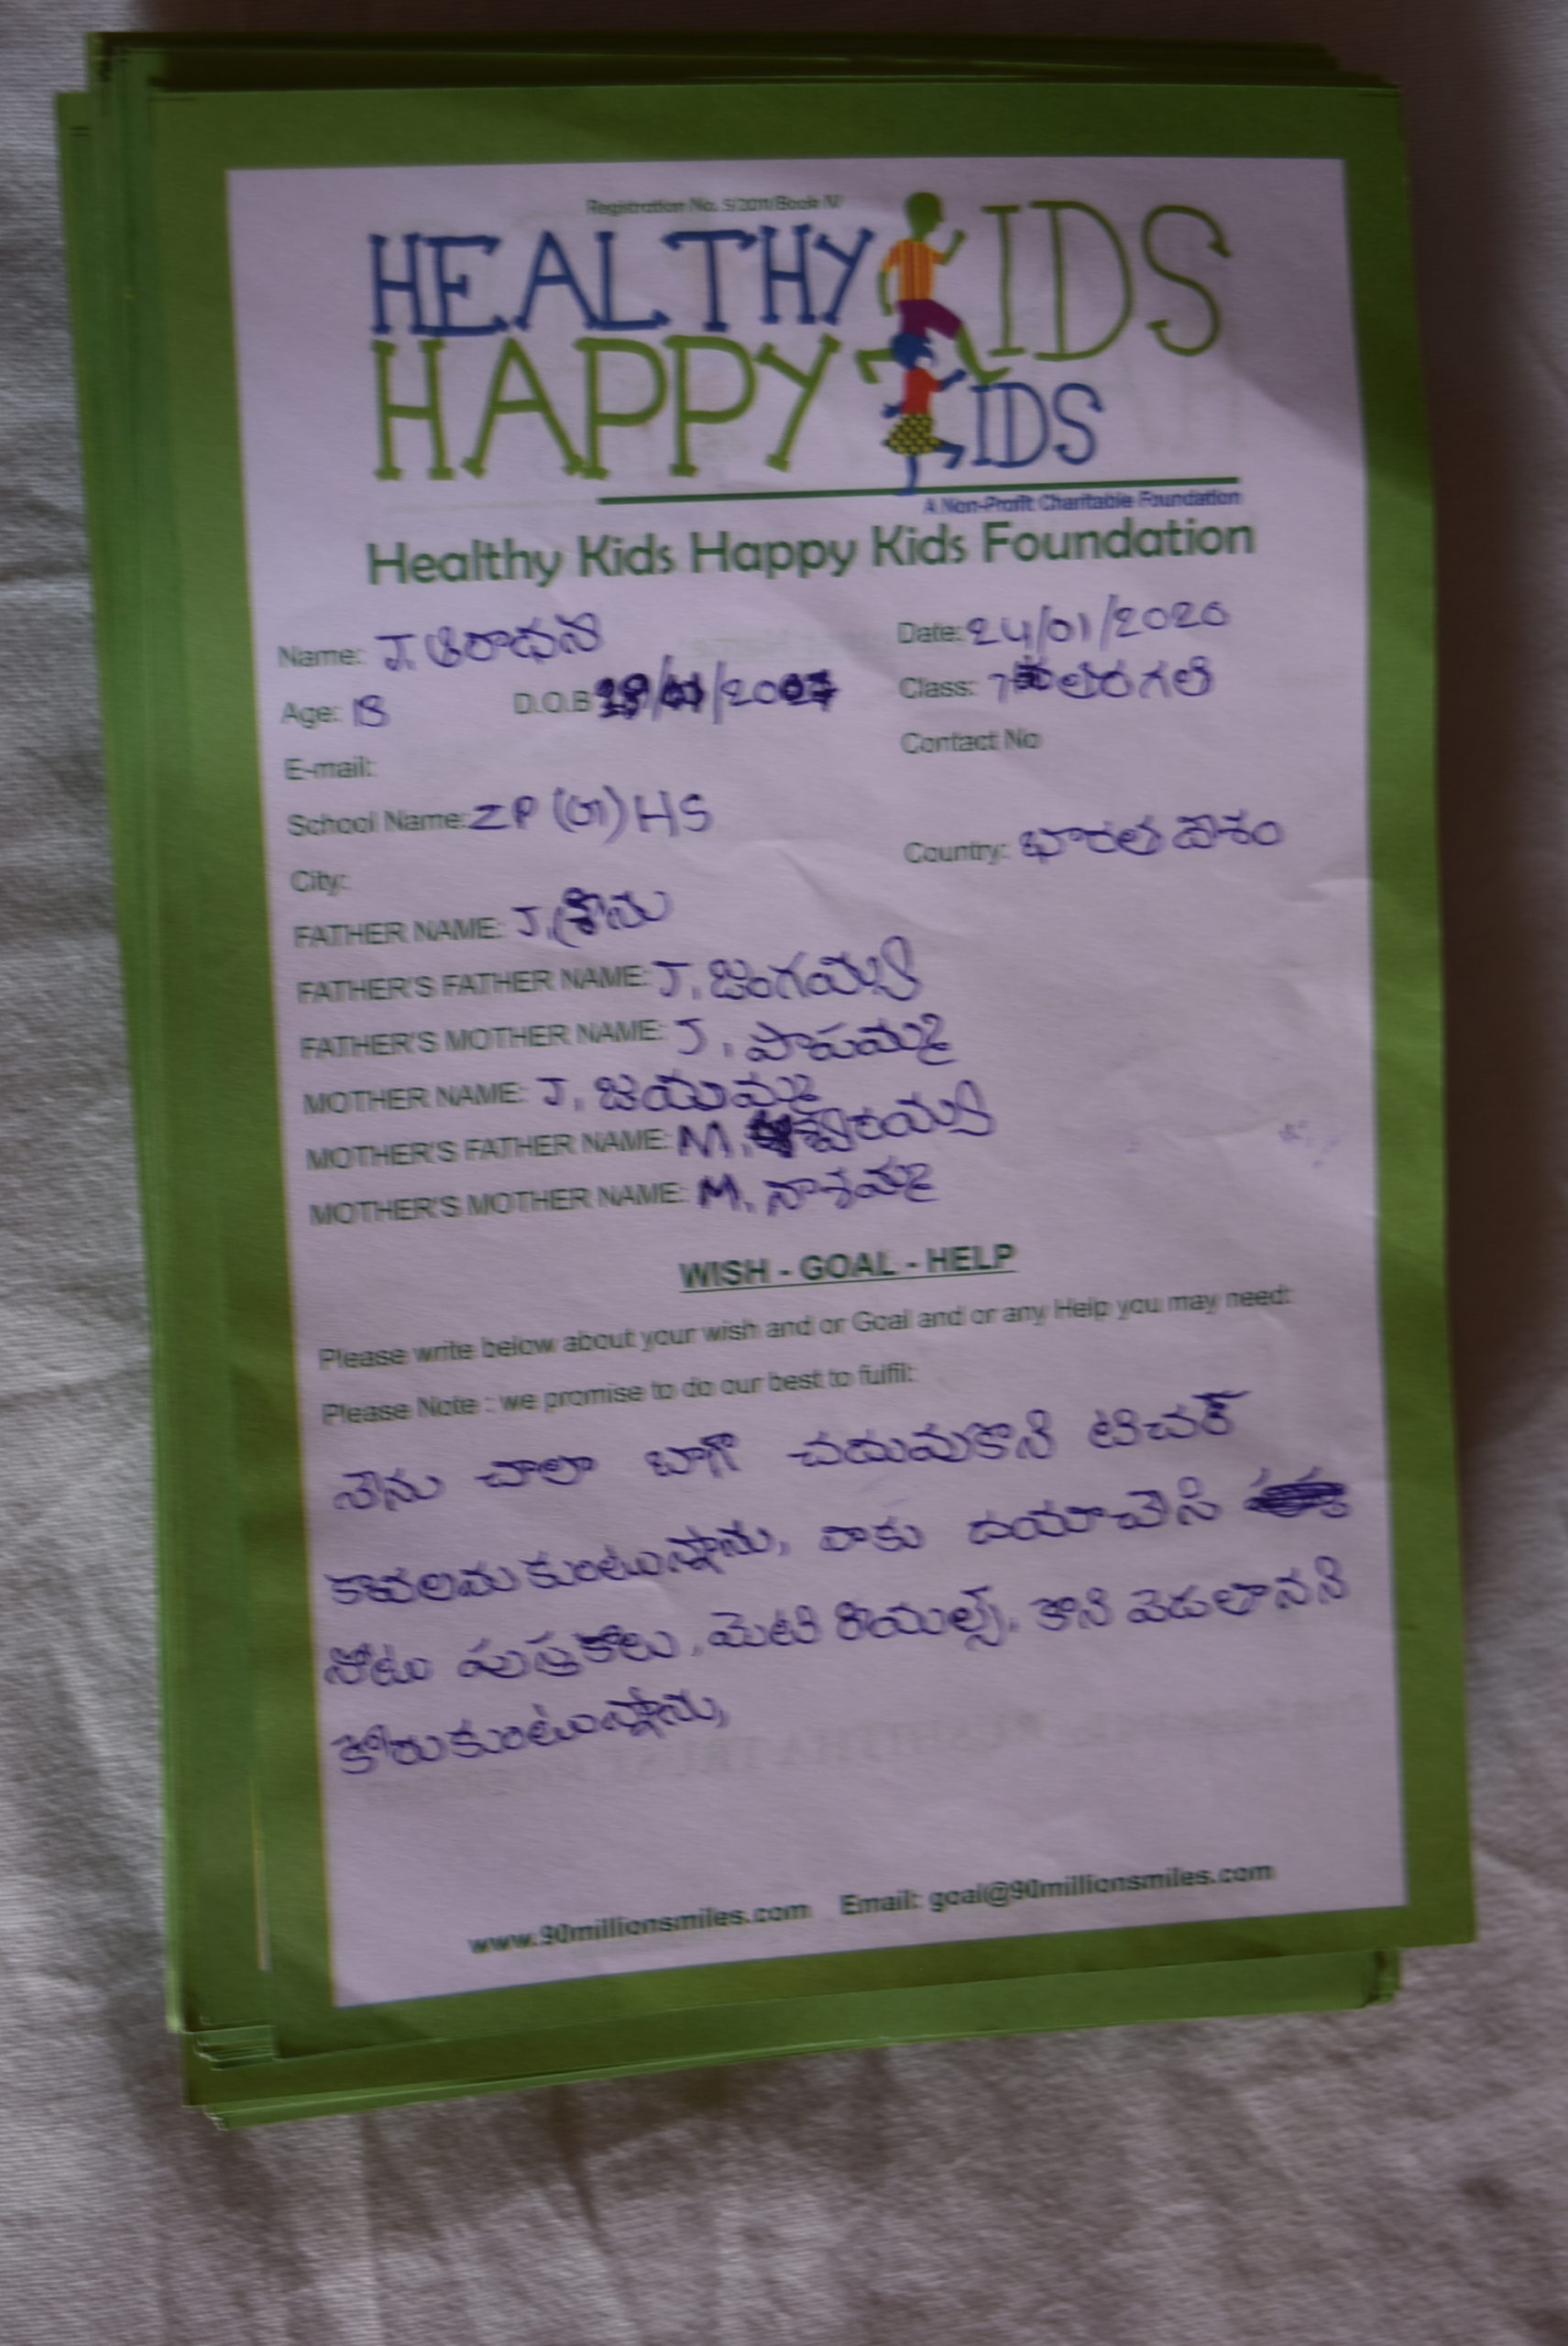 Registration No. 5/2011/Book IV
HEALTHY KIDS
HAPPY KIDS
A Non-Profit Charitable Foundation
Healthy Kids Happy Kids Foundation
Name: J. ఆరాధన Date: 24/01/2020
Age: 13 D.O.B Class: 7 తరగతి
E-mail: Contact No
School Name: ZP (G) HS
City: Country: భారత దేశం
FATHER NAME: J. శ్రీను
FATHER'S FATHER NAME: J. జంగయ్య
FATHER'S MOTHER NAME: J. పాపమ్మ
MOTHER NAME: J. జయమ్మ
MOTHER'S FATHER NAME: M.
MOTHER'S MOTHER NAME: M.
WISH - GOAL - HELP
Please write below about your wish and or Goal and or any Help you may need:
Please Note : we promise to do our best to fulfil:
నేను చాలా బాగా చదువుకొని టిచర్
కావలను కుంటున్నాను, నాకు దయాచేసి
నోటు పుస్తకాలు, మెటిరియల్స్, కొని పెడతానని
కోరుకుంటున్నాను,
www.90millionsmiles.com Email: goal@90millionsmiles.com